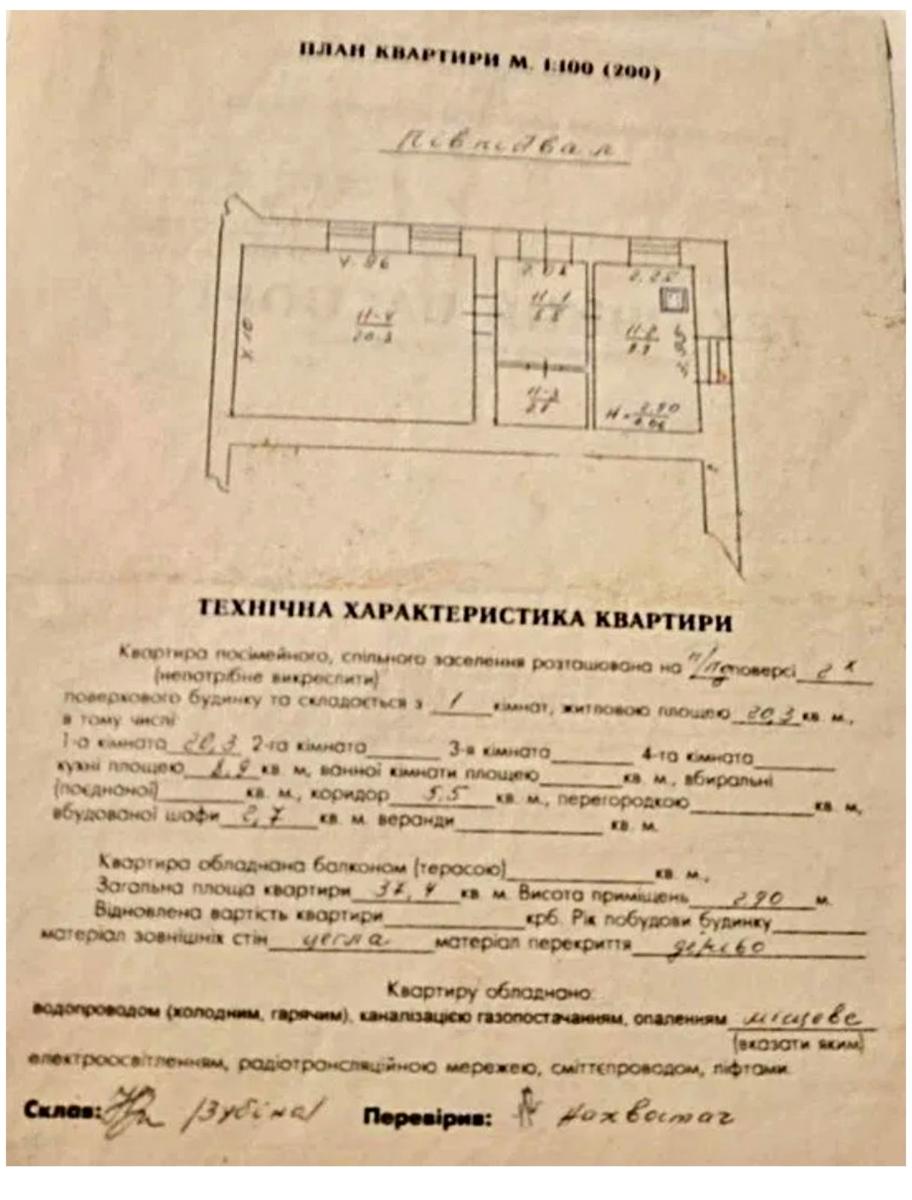 ПЛАН КВАРТИРИ М. 1:100 (200)
Півпідвал
4.86
2.08
2.25
II-4
20.3
II-1
5.5
II-2
8.9
II-3
2.7
H = 2.90
ТЕХНІЧНА ХАРАКТЕРИСТИКА КВАРТИРИ
Квартира посімейного, спільного заселення розташована на п/пд поверсі 2х
(непотрібне викреслити)
поверхового будинку та складається з 1 кімнат, житловою площею 20,3 кв. м.,
в тому числі:
1-а кімната 20,3 2-га кімната 3-я кімната 4-та кімната
кухні площею 8,9 кв. м, ванної кімнати площею кв. м., вбиральні
(поєднаної) кв. м., коридор 5,5 кв. м., перегородкою кв. м,
вбудованої шафи 2,7 кв. м. веранди кв. м.
Квартира обладнана балконом (терасою) кв. м.,
Загальна площа квартири 37,4 кв. м. Висота приміщень 290 м.
Відновлена вартість квартири крб. Рік побудови будинку
матеріал зовнішніх стін цегла матеріал перекриття дерево
Квартиру обладнано:
водопроводом (холодним, гарячим), каналізацією газопостачанням, опаленням місцеве
(вказати яким)
електроосвітленням, радіотрансляційною мережею, сміттєпроводом, ліфтами.
Склав: /Зубіна/ Перевірив: Нахвостач